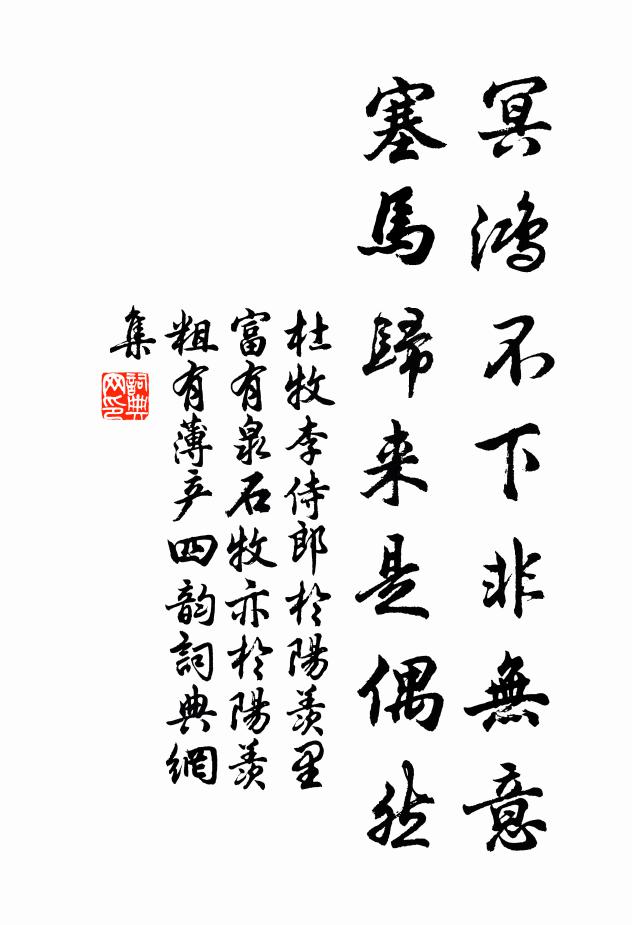 冥鴻不下非無意
塞馬歸来是偶然
杜牧李侍郎於陽羨里
富有泉石牧亦於陽羨
粗有薄产四韵詞典網
集
詞典
网印